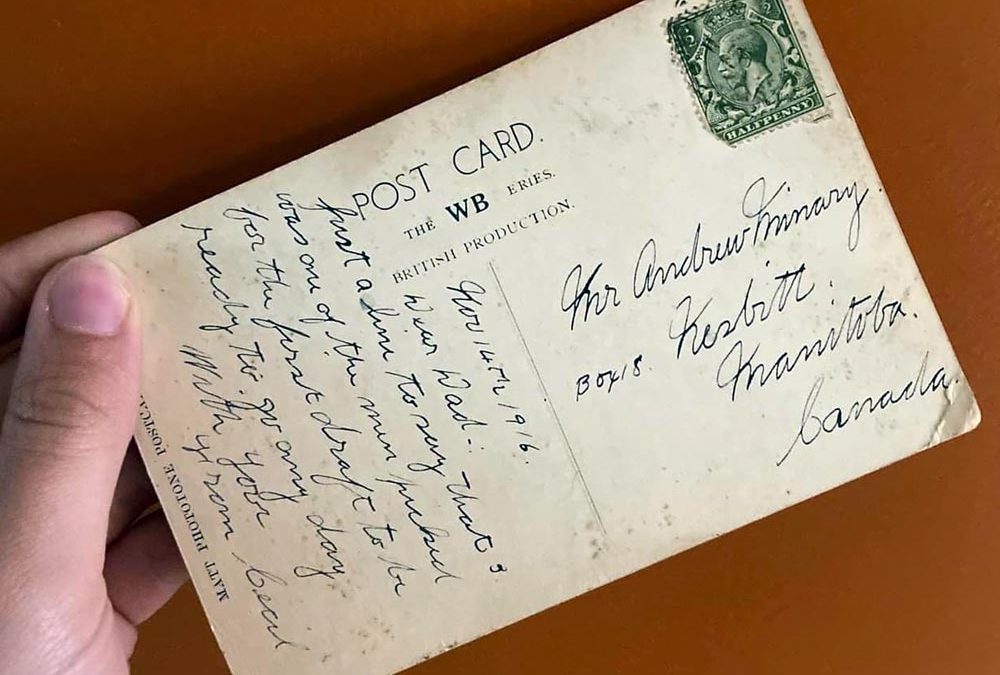 POST CARD.
THE WB ERIES.
BRITISH PRODUCTION.
HALFPENNY
Nov 14th 1916.
Dear Dad:-
Just a line to say that I
was one of the men picked
for the first draft to be
ready to go any day
from Cecil
Mr Andrew Minary.
Nesbitt.
Box 18.
Manitoba.
Canada.
MATT PHOTOTONE